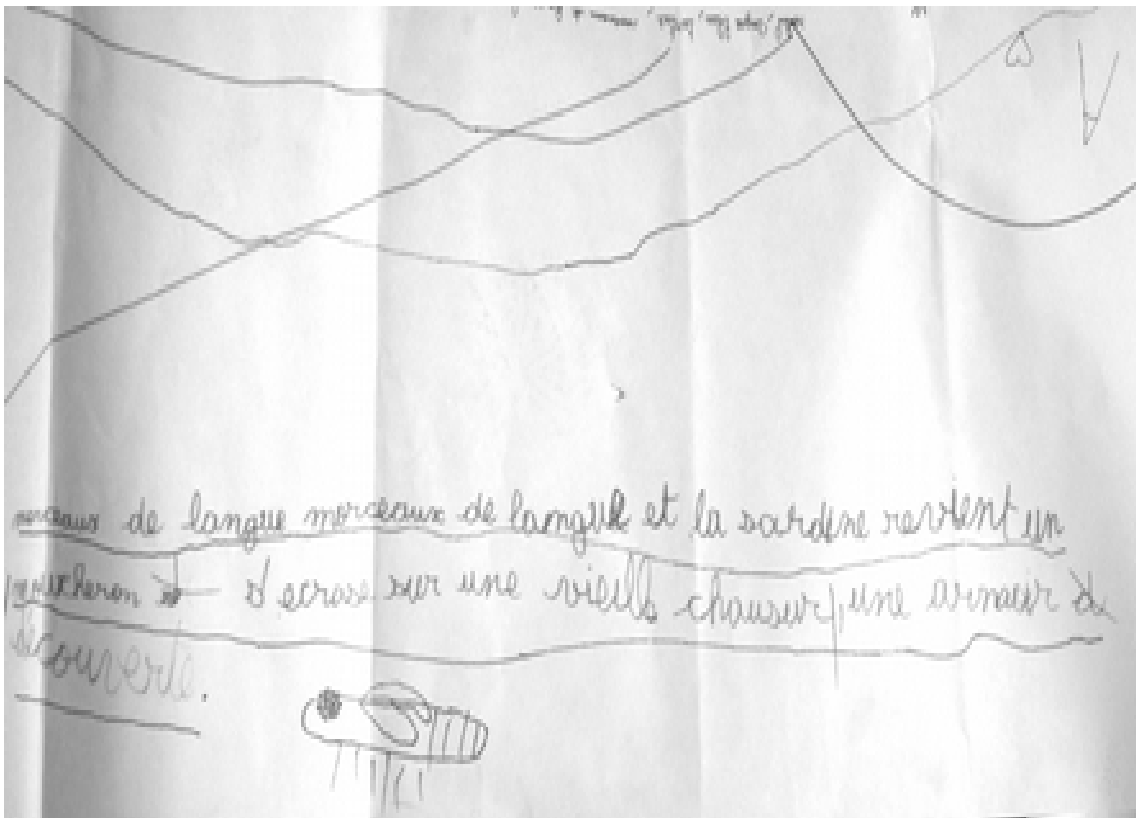 morceaux de langue morceaux de langue et la sardine revient un
moucheron s'ecrase sur une vieille chausur, une armoir de
découverte.